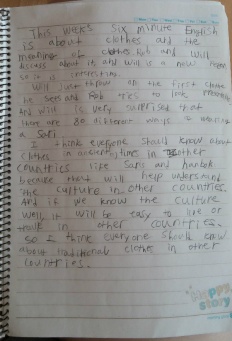 This week's six minute English
is about clothes and the
meaning of clothes Rob and Will
discuss about it and Will is a new person
so it is interesting.
Will just throw on the first clothe
he sees and Rob tries to look
and Will is very surprised that
there are 80 different ways of wearing
a Sari.
I think everyone should know about
clothes in ancient time in other
countries like Saris and hanbok
because that will help understand
the culture in other countries.
And if we know the culture
well it will be easy to live or
travel in other countries.
so I think everyone should know
about traditional clothe in other
countries.
Happy
story